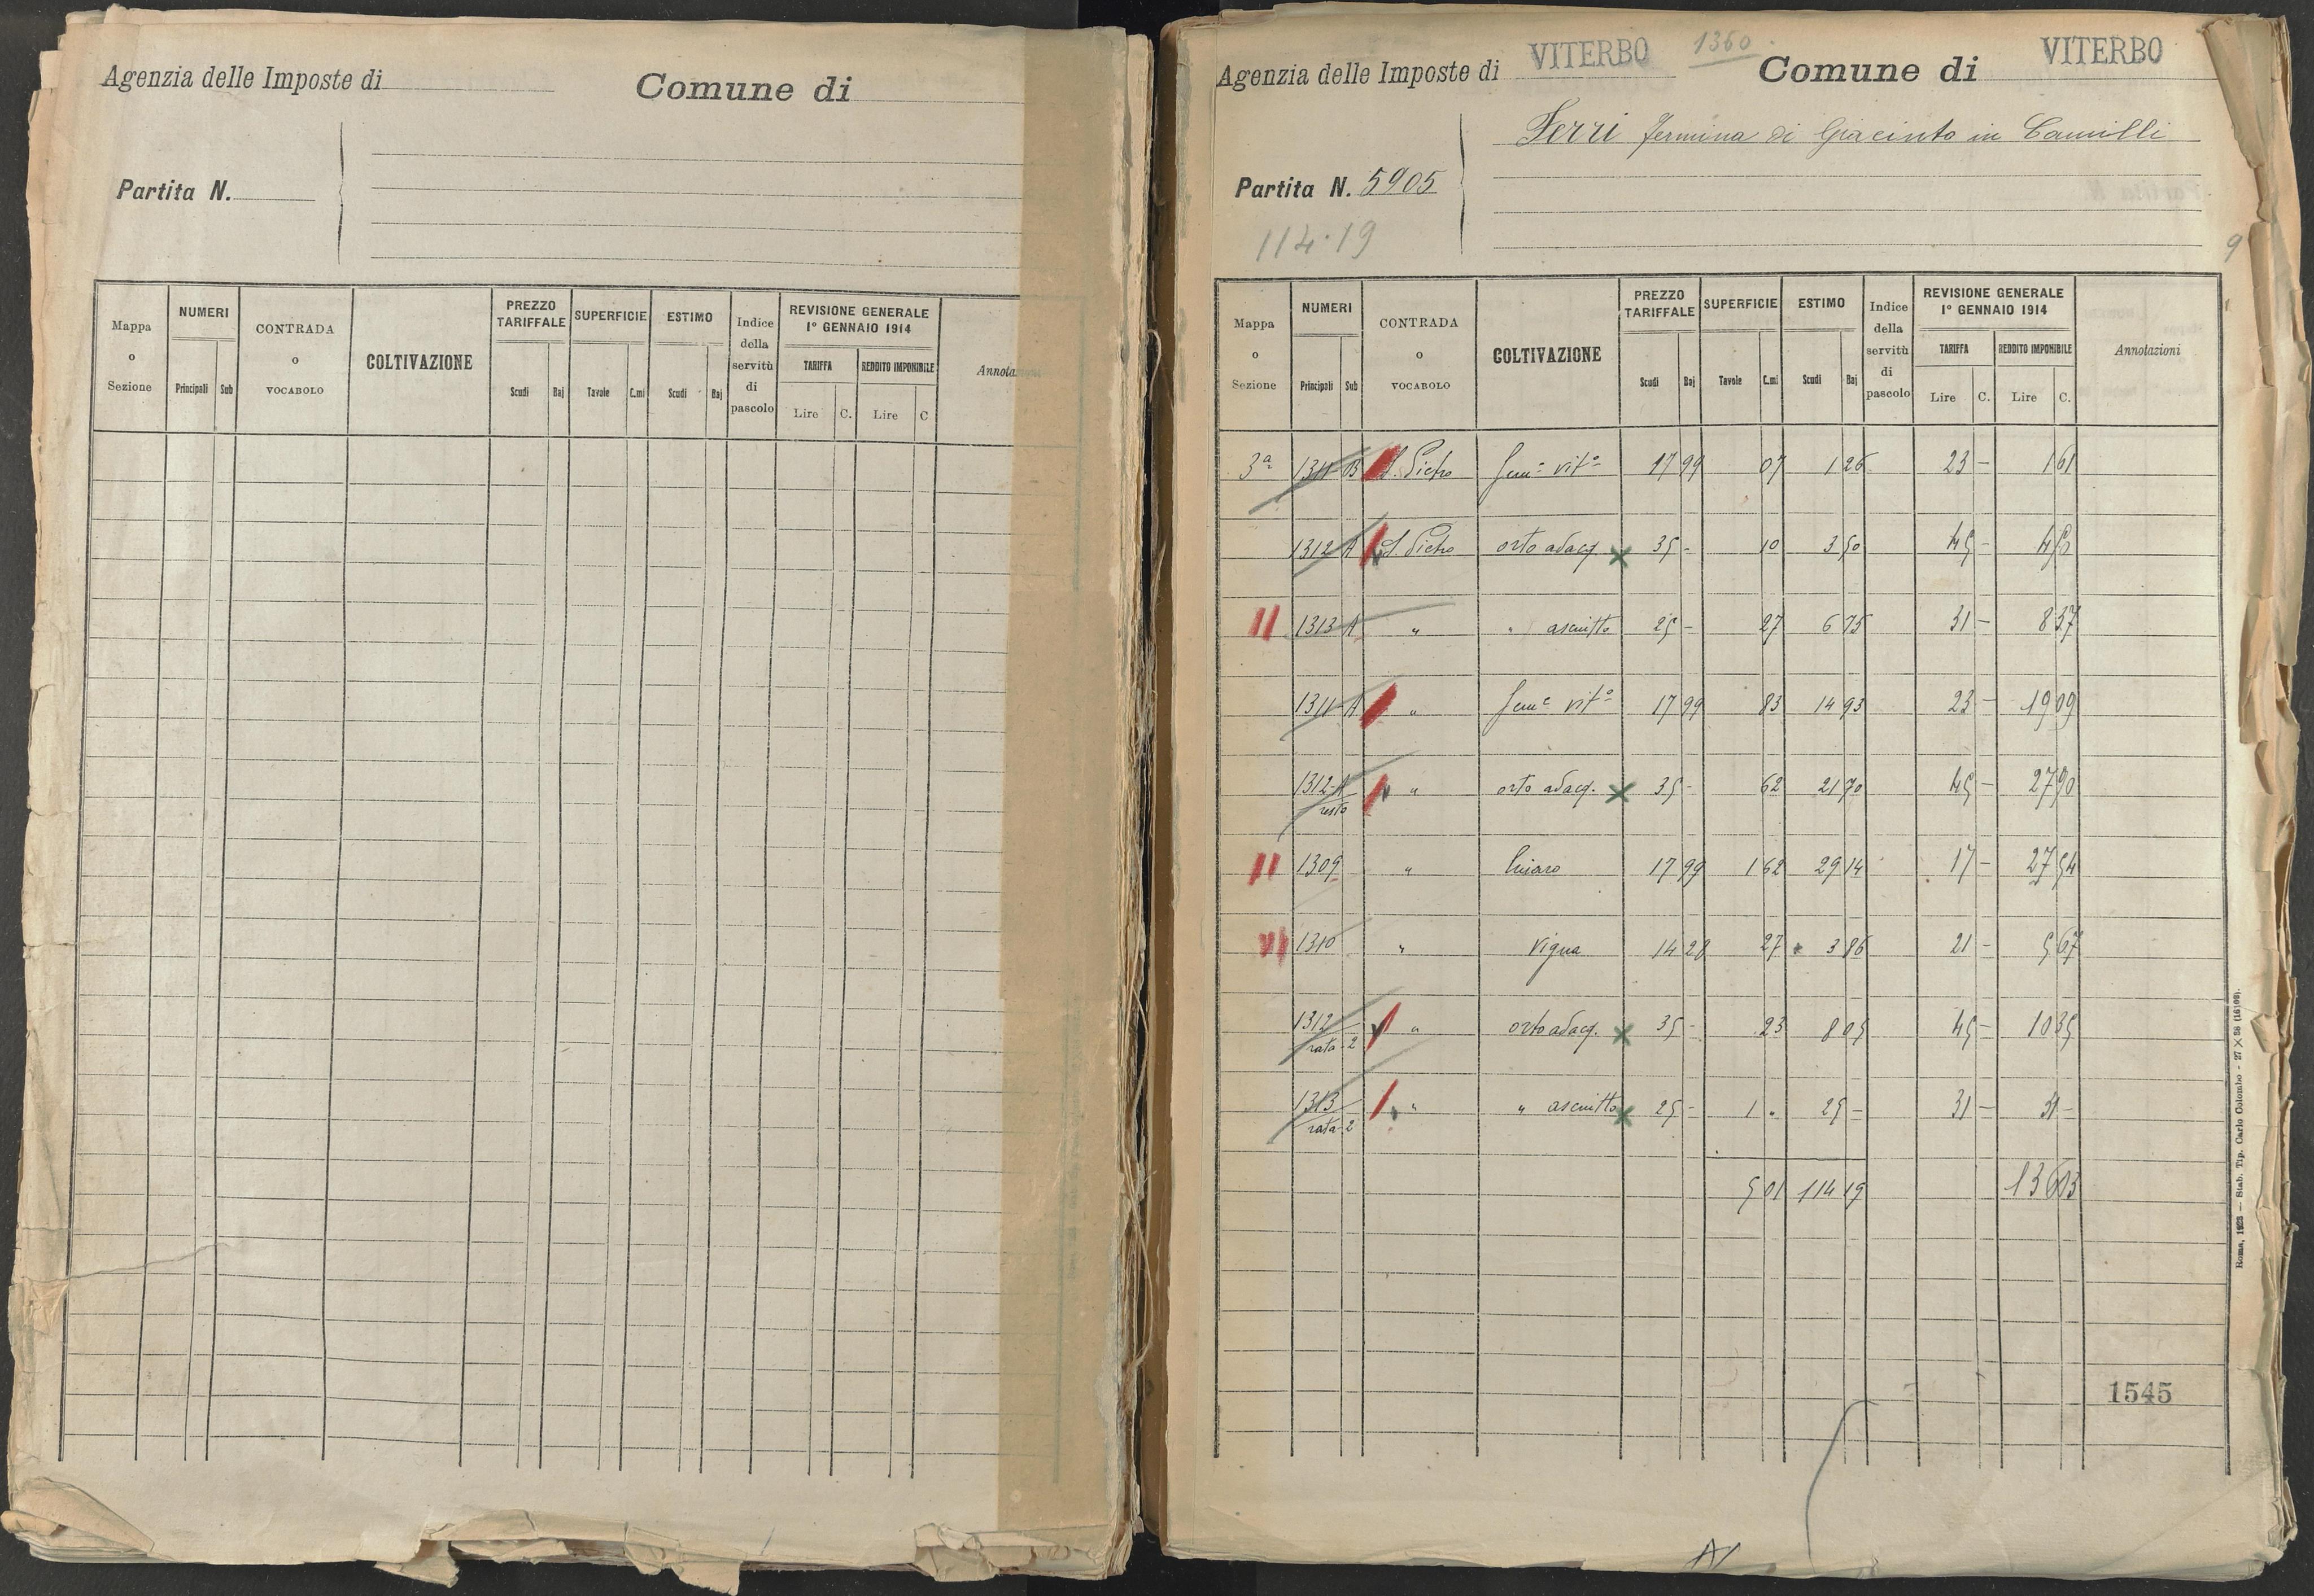 Agenzia delle Imposte di
Comune di
Partita N.
Mappa o Sezione | NUMERI Principali Sub | CONTRADA o VOCABOLO | COLTIVAZIONE | PREZZO TARIFFALE Scudi Baj | SUPERFICIE Tavole C.mi | ESTIMO Scudi Baj | Indice della servitù di pascolo | REVISIONE GENERALE 1° GENNAIO 1914 TARIFFA Lire C. REDDITO IMPONIBILE Lire C | Annotazioni
Agenzia delle Imposte di VITERBO 1360 Comune di VITERBO
Ferri Fermina di Giacinto in Camilli
Partita N. 5905
114.19
9
Mappa o Sezione | NUMERI Principali Sub | CONTRADA o VOCABOLO | COLTIVAZIONE | PREZZO TARIFFALE Scudi Baj | SUPERFICIE Tavole C.mi | ESTIMO Scudi Baj | Indice della servitù di pascolo | REVISIONE GENERALE 1° GENNAIO 1914 TARIFFA Lire C. REDDITO IMPONIBILE Lire C. | Annotazioni
3ª 1311 B S. Pietro Semº vitº 17 99 07 1 26 23 - 1 61
1312 A S Pietro orto adacq. 35 - 10 3 50 45 - 4 50
1313 A " " asciutto 25 - 27 6 75 31 - 8 37
1311 A " Semº vitº 17 99 83 14 93 23 - 19 09
1312 A resto " orto adacq. 35 - 62 21 70 45 - 27 90
1309 " 17 99 1 62 29 14 17 - 27 54
1310 " Vigna 14 28 27 3 86 21 - 5 67
1312 rata 2 " orto adacq. 35 - 23 8 05 45 - 10 35
1313 rata 2 " " asciutto 25 - 1 " 25 - 31 - 31 -
5 01 114 19 136 03
1545
Roma, 1923 — Stab. Tip. Carlo Colombo - 27 X 38